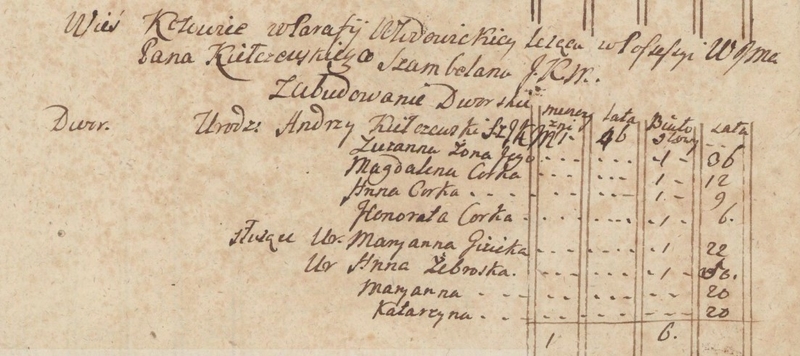 Wieś Kłowice w Parafÿ Widowickiey leżąca w Possessyi W Jme
Pana Kiełczewskiego Szambelana J. K. M.
Zabudowanie Dworskie
menży Lata Biało Lata
zni głowy
Dwor. Urodz: Andrzy Kiełczewski Sz JKM 1 - 46
Zuzanna Żona Jego - 1 - 36
Magdalena Corka - 1 - 12
Anna Corka - 1 - 9
Honorata Corka - 1 6.
służące Ur. Maryanna - 1 22
Ur Anna Żebroska. - 1 -
Maryanna - 20
Katarzyna - 20
1 6.